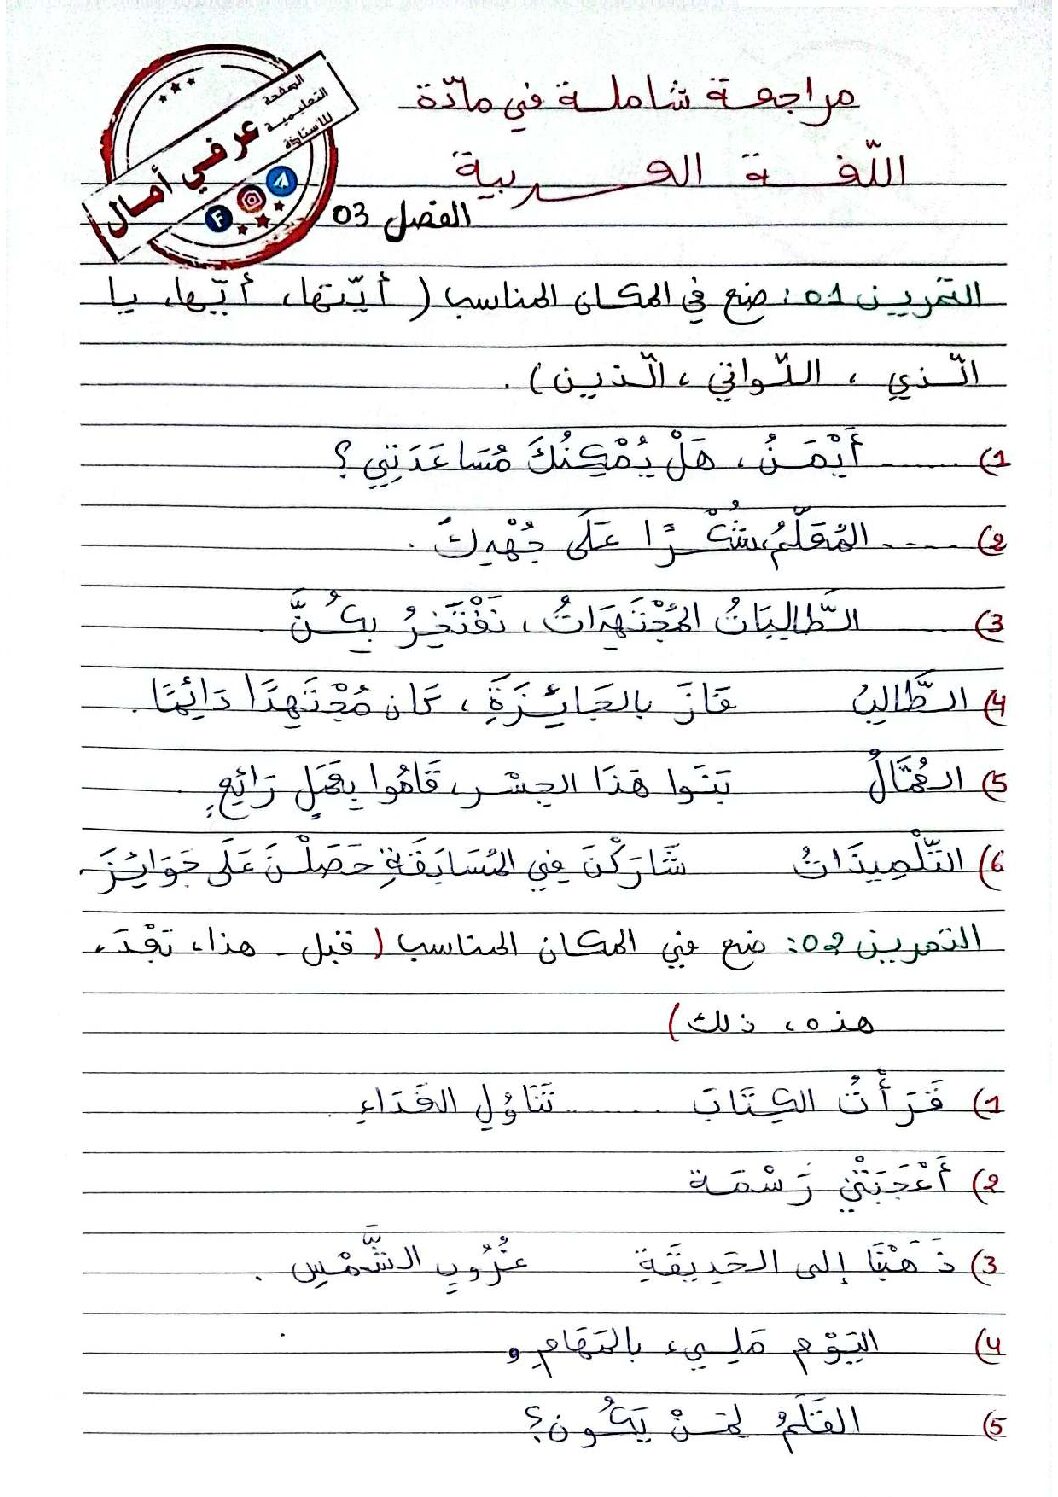 مراجعة شاملة في مادّة
اللّغة العربية
الفصل 03
الصفحة
التعليمية
للأستاذة
عرفي أمال
التمرين 01: ضع في المكان المناسب ( أيّتها، أيّها، يا
الّذي ، اللّواتي ، الّذين) .
1) ........ أَيْمَنُ، هَلْ يُمْكِنُكَ مُسَاعَدَتِي؟
2) ........ المُعَلِّمُ، شُكْرًا عَلَى جُهْدِكَ .
3) الطَّالِبَاتُ المُجْتَهِدَاتُ، نَفْتَخِرُ بِكُنَّ
4) الطَّالِبُ فَازَ بِالجَائِزَةِ، كَان مُجْتَهِدًا دَائِمًا.
5) العُمَّالُ بَنَوا هَذَا الجِسْر، قَامُوا بِعَمَلٍ رَائِعٍ.
6) التِّلْمِيذَاتُ شَارَكْنَ فِي المُسَابَقَةِ حَصَلْنَ عَلَى جَوَائِزَ.
التمرين 02: ضع في المكان المناسب ( قبل - هذا، بَعْدَ،
هذه، ذلك)
1) قَرَأْتُ الكِتَابَ ........ تَنَاوُلِ الغَدَاءِ
2) أَعْجَبَتْنِي رَسْمَة
3) ذَهَبْنَا إلى الحَدِيقَةِ غُرُوبِ الشَّمْسِ .
4) اليَوْم مَلِيء بالمَهَامِ و
5) القَلَمُ لِمَنْ يَكُون؟